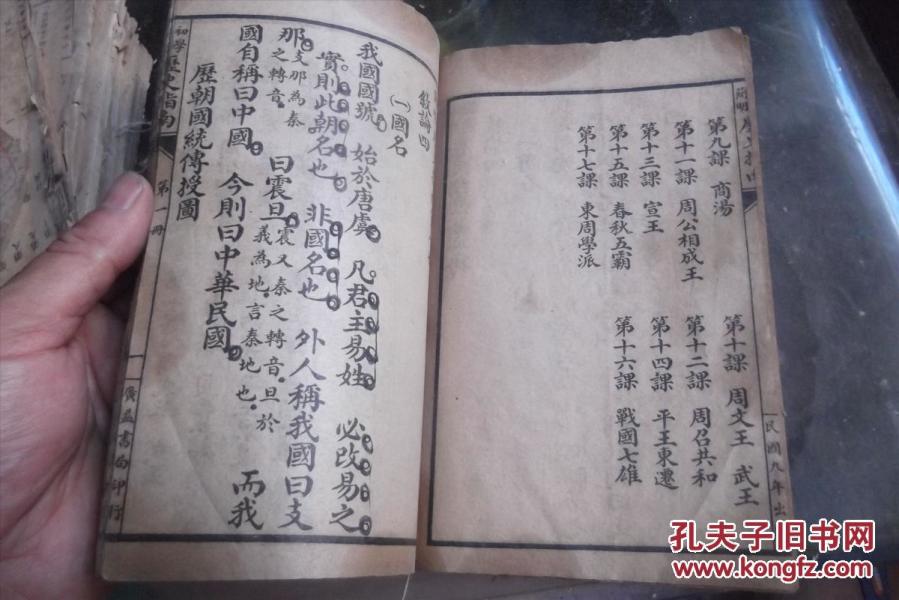 民國九年出
第九課 商湯
第十課 周文王 武王
第十一課 周公相成王
第十二課 周召共和
第十三課 宣王
第十四課 平王東遷
第十五課 春秋五霸
第十六課 戰國七雄
第十七課 東周學派
(一)國名
我國國號 始於唐虞 凡君主易姓 必改易之
實則此朝名也 非國名也 外人稱我國曰支
那 支那為秦之轉音 曰震旦 震又秦之轉音旦於義為地言秦地也 而我
國自稱曰中國 今則曰中華民國
歷朝國統傳授圖
初學歷史指南
第一冊
廣益書局印行
孔夫子旧书网
www.kongfz.com